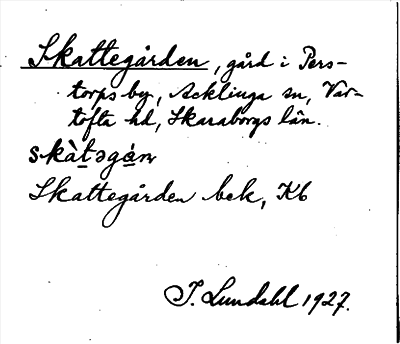 Skattegården, gård i Pers-
torps by, Acklinga sn, Var-
tofta hd, Skaraborgs län.
skàtəgáɳ
Skattegården bek, Kb
I. Lundahl 1927.